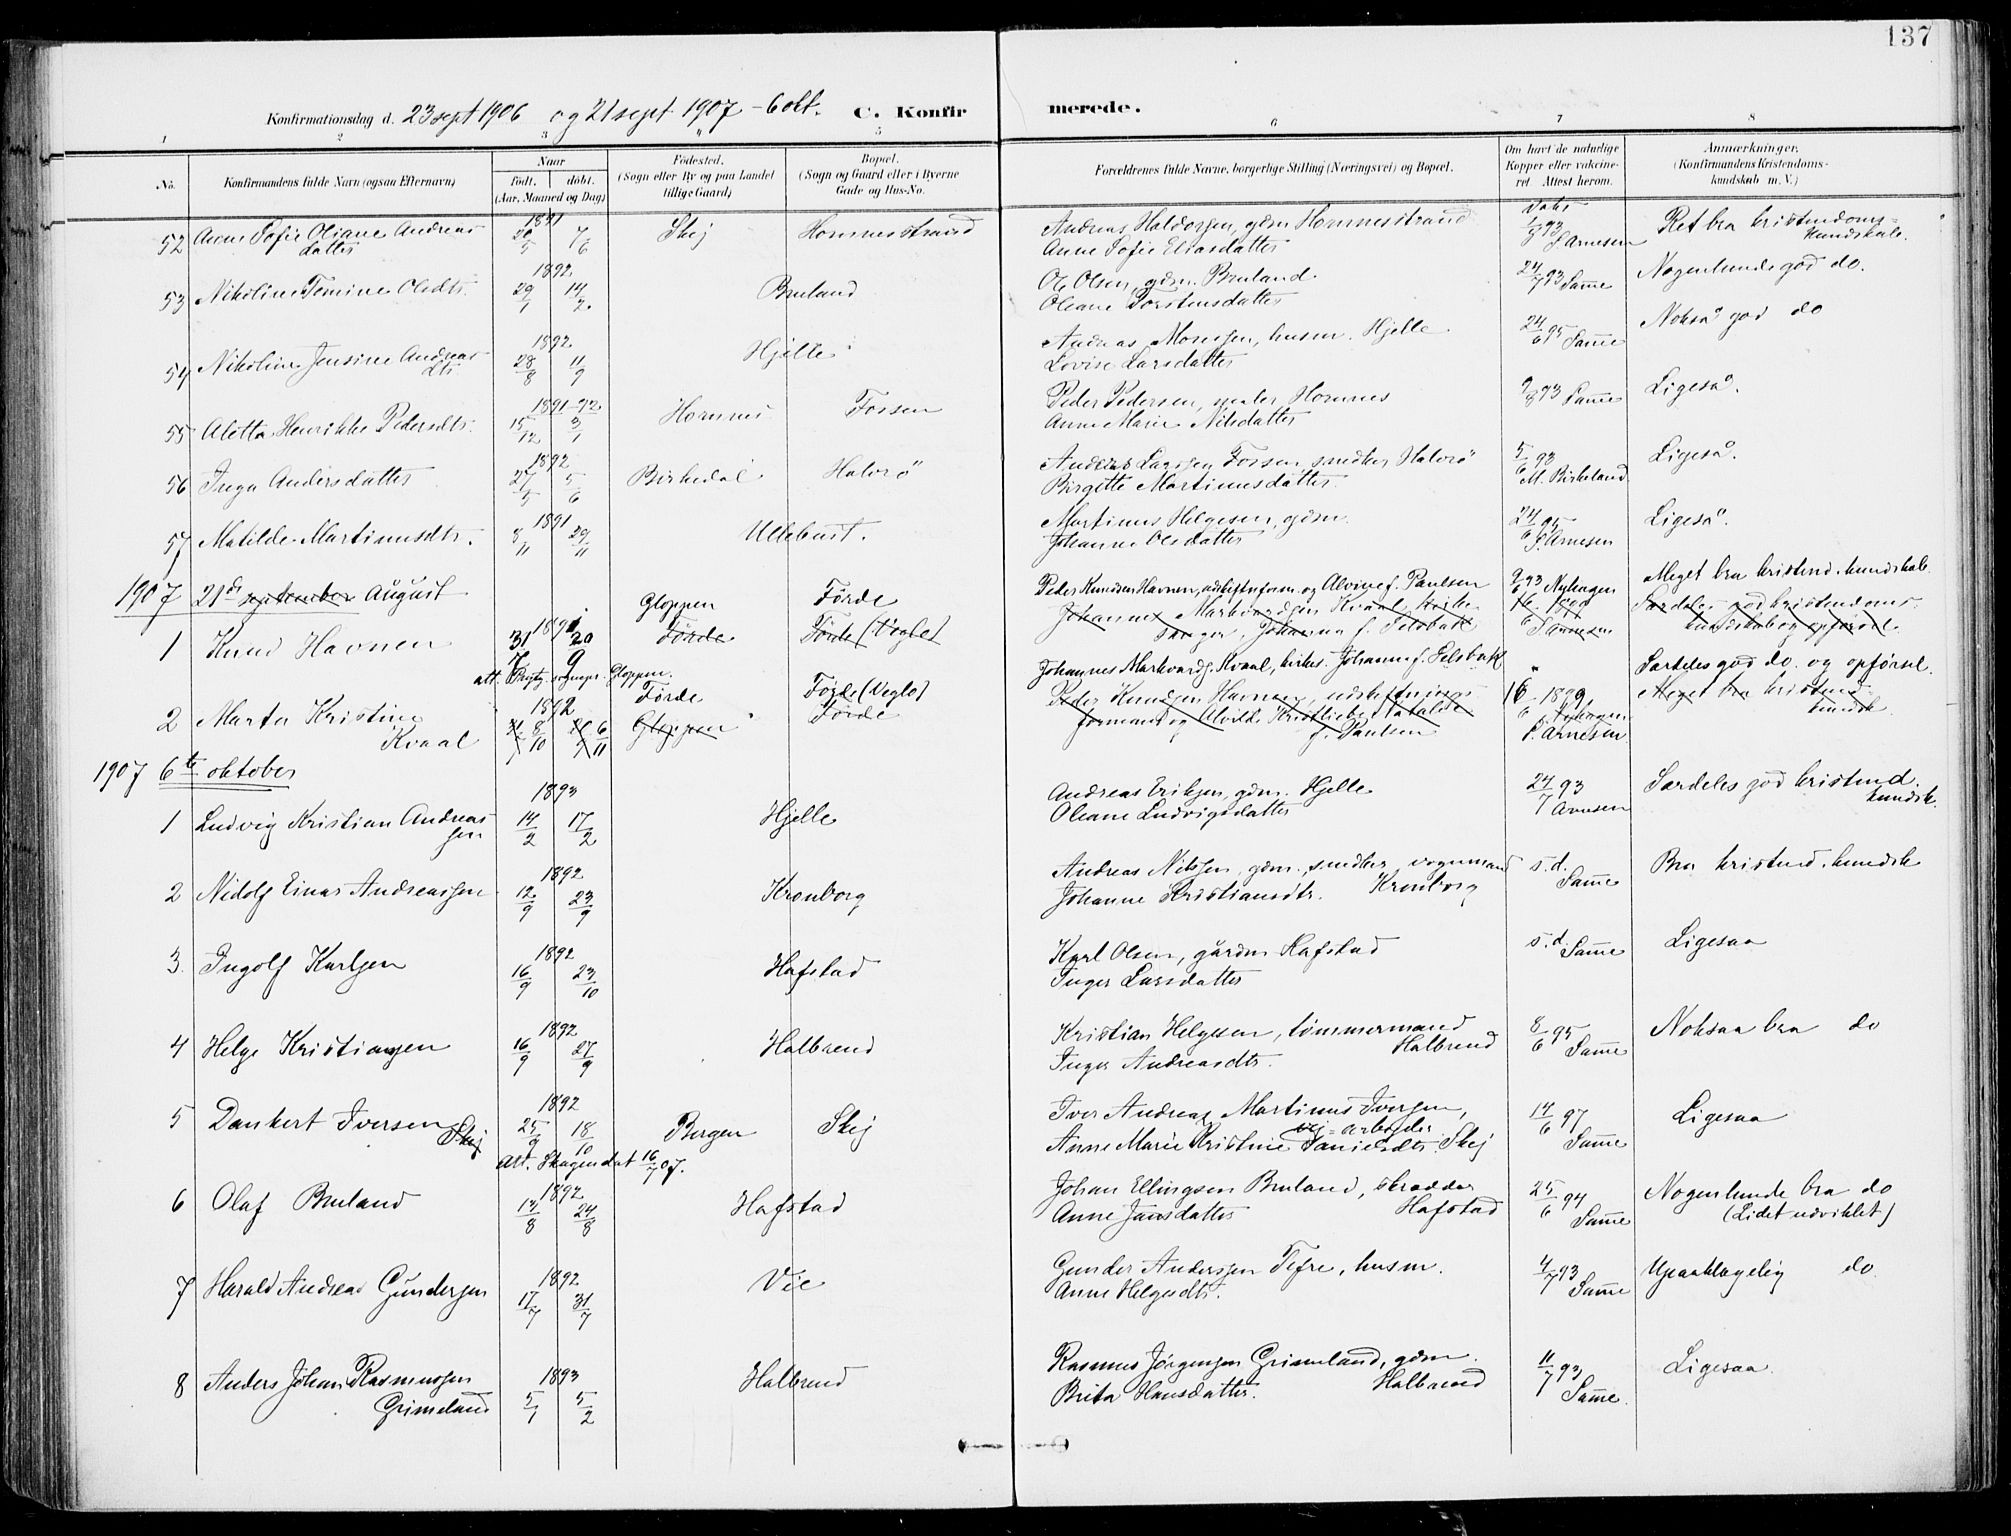 137
Konfirmationsdag d. 23 sept 1906 og 21 sept. 1907 - 6 okt. C. Konfirmerede.
1 2 3 5 6 7 8
No.
Konfirmandens fulde Navn (ogsaa Efternavn)
Naar
født. døbt.
(Aar, Maaned og Dag)
Fødested.
(Sogn eller By og paa Landet
tillige Gaard)
Bopæl.
(Sogn og Gaard eller i Byerne
Gade og Hus-No.
Forældrenes fulde Navne, borgerlige Stilling (Næringsvei) og Bopæl.
Om havt de naturlige
Kopper eller vakcine-
ret. Attest herom.
Anmærkninger.
(Konfirmandens Kristendoms-
kundskab m. V.)
52 Anne Sofie Oliane Andreas
datter
1891 20/5 7/6 Skej Hornnesstrand
Andreas Haldorsen, gdm Hornnesstrand
Anne Sofie Eliasdatter
93 S Arnesen
Ret bra kristendoms=
kundskab.
53 Nikoline Tomine Olsdtr. 1892 29/1 14/2 Bruland
Ole Olsen, gdm. Bruland.
Oleane Torstensdatter
24/7 93 Samme Nogenlunde god do.
54 Nikoline Jensine Andreas
dtr. 1892 28/8 11/9 Hjelle
Andreas Mosessen, husm. Hjelle
Lovise Larsdatter
24/6 95 Samme Nokså god do
55 Aletta Henrikke Pedersdtr. 1891-92 15/12 3/1 Hornnes Fossen
Peder Pedersen, maler Hornnes
Anne Marie Nilsdatter
9/8 93 Samme Ligeså.
56 Inga Andersdatter 1892 27/5 5/6 Birkedal Halvrö
Andreas Larssen Fossen, snedker Halvrö
Birgitte Martinusdatter.
5/6 93 M. Birkeland Ligeså.
57 Matilde Martinusdtr. 1891 8/11 29/11 Ullebust.
Martinus Helgesen, gdm.
Johanne Olsdatter
24/6 95 S. Arnesen Ligeså.
1907 21de september August
1 Knud Havnen 1891 31/7 20/9 Gloppen Førde
Førde Førde (Vegle)
att. sognepr. Gloppen.
Peder Knudsen Havnen, udskiftnform. og Alvine f. Paulsen
Johannes Markvardsen Kvaal, kirke-
sanger, Johanna f. Felsbak
9/6 93 Nyhagen
16/6 1899 S Arnesen
Meget bra kristend. kundskab
Særdeles god kristendoms-
kundskab og opførsel.
2 Marta Kristine
Kvaal 1892 8/10 6/11 Førde Førde (Vegle)
Gloppen Førde
Johannes Markvardsen Kvaal, kirkes. Johanne f. Felsbak
Peder Knudsen Havnen, udskiftnings-
formand og Alvilde
f. Paulsen
" 16/6 1899 Nyhagen
S. Arnesen.
Særdeles god do. og opførsel.
Meget bra kristend.
kundsk.
1907 6te oktober
1 Ludvig Kristian Andreas
sen 1893 14/2 17/2 Hjelle
Andreas Eriksen, gdm. Hjelle
Oleane Ludvigsdatter
24/7 93 Arnesen
Særdeles god kristend.
kundsk.
2 Nidolf Einar Andreassen 1892 12/9 23/9 Kronborg
Andreas Nilsen, gdm., snedker, vognmand
Johanne Kristiansdtr. Kronborg
s. d. Samme Bra kristend. kundsk
3. Ingolf Karlsen 1892 16/9 23/10 Hafstad
Karl Olsen, gårdm Hafstad
Inger Larsdatter
s. d. Samme Ligesaa
4 Helge Kristiansen 1892 16/9 27/9 Halbrend
Kristian Helgesen, tømmermand
Halbrend
Inger Andreasdtr.
8/6 95 Samme Noksaa bra do
5 Dankert Iversen
Skej 1892 25/9 18/10 Bergen Skej
att. Skagen dat 16/7 07.
Iver Andreas Martinus Iversen,
vej-arbeider
Anne Marie Kristine Danielsdtr. Skej
14/6 97 Samme Ligesaa
6 Olaf Bruland 1892 14/8 24/8 Hafstad
Johan Ellingsen Bruland, skrædder
Anne Jansdatter Hafstad
25/6 94 Samme Nogenlunde bra do
(Lidet udviklet)
7 Harald Andreas Gundersen 1892 17/7 31/7 Vie
Gunder Anderssen Tefre, husm.
Anne Helgesdtr.
4/7 93 Samme Upaaklagelig do.
8 Anders Johan Rasmussen
Grimeland 1893 5/1 5/2 Halbrend
Rasmus Jørgensen Grimeland, gdm.
Brita Hansdatter. Halbrend
11/7 93 Samme. Ligesaa.